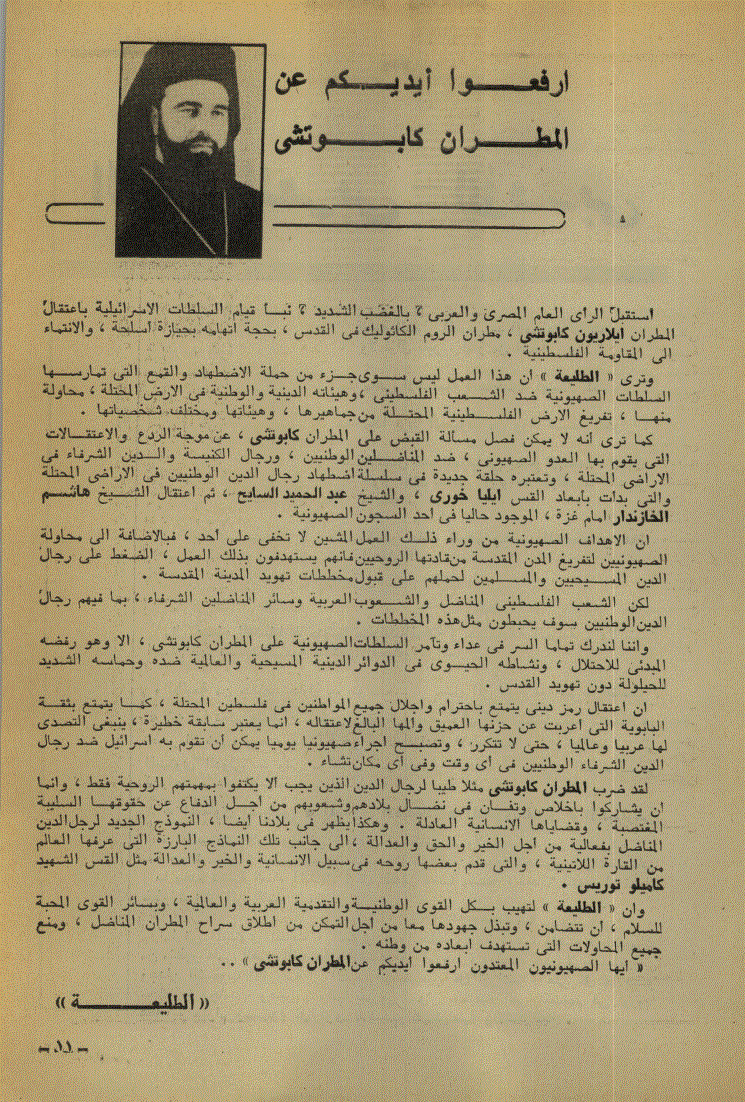 ارفعوا أيديكم عن
المطران كابوتشى
استقبل الراى العام المصرى والعربى ، بالغضب الشديد ، نبأ قيام السلطات الاسرائيلية باعتقال
المطران ايلاريون كابوتشى ، مطران الروم الكاثوليك فى القدس ، بحجة اتهامه بحيازة أسلحة ، والانتماء
الى المقاومة الفلسطينية .
وترى « الطليعة » ان هذا العمل ليس سوى جزء من حملة الاضطهاد والقمع التى تمارسها
السلطات الصهيونية ضد الشعب الفلسطينى ، وهيئاته الدينية والوطنية فى الارض المحتلة ، محاولة
منها ، تفريغ الارض الفلسطينية المحتلة من جماهيرها ، وهيئاتها ومختلف شخصياتها .
كما ترى أنه لا يمكن فصل مسألة القبض على المطران كابوتشى ، عن موجة الردع والاعتقالات
التى يقوم بها العدو الصهيونى ، ضد المناضلين الوطنيين ، ورجال الكنيسة والدين الشرفاء فى
الاراضى المحتلة ، وتعتبره حلقة جديدة فى سلسلة اضطهاد رجال الدين الوطنيين فى الاراضى المحتلة
والتى بدأت بابعاد القس ايليا خورى ، والشيخ عبد الحميد السايح ، ثم اعتقال الشيخ هاشم
الخازندار امام غزة ، الموجود حاليا فى أحد السجون الصهيونية .
ان الاهداف الصهيونية من وراء ذلك العمل المشين لا تخفى على أحد ، فبالاضافة الى محاولة
الصهيونيين لتفريغ المدن المقدسة من قادتها الروحيين فانهم يستهدفون بذلك العمل ، الضغط على رجال
الدين المسيحيين والمسلمين لحملهم على قبول مخططات تهويد المدينة المقدسة .
لكن الشعب الفلسطينى المناضل والشعوب العربية وسائر المناضلين الشرفاء ، بما فيهم رجال
الدين الوطنيين سوف يحبطون مثل هذه المخططات .
واننا لندرك تماما السر فى عداء وتآمر السلطات الصهيونية على المطران كابوتشى ، الا وهو رفضه
المبدئى للاحتلال ، ونشاطه الحيوى فى الدوائر الدينية المسيحية والعالمية ضده وحماسه الشديد
للحيلولة دون تهويد القدس .
ان اعتقال رمز دينى يتمتع باحترام واجلال جميع المواطنين فى فلسطين المحتلة ، كما يتمتع بثقة
البابوية التى أعربت عن حزنها العميق وألمها البالغ لاعتقاله ، انما يعتبر سابقة خطيرة ، ينبغى التصدى
لها عربيا وعالميا ، حتى لا تتكرر ، وتصبح اجراء صهيونيا يوميا يمكن أن تقوم به اسرائيل ضد رجال
الدين الشرفاء الوطنيين فى أى وقت وفى أى مكان تشاء .
لقد ضرب المطران كابوتشى مثلا طيبا لرجال الدين الذين يجب ألا يكتفوا بمهمتهم الروحية فقط ، وانما
ان يشاركوا باخلاص وتفان فى نضال بلادهم وشعوبهم من أجل الدفاع عن حقوقها السليبة
المغتصبة ، وقضاياها الانسانية العادلة . وهكذا يظهر فى بلادنا أيضا ، النموذج الجديد لرجل الدين
المناضل بفعالية من أجل الخير والحق والعدالة ، الى جانب تلك النماذج البارزة التى عرفها العالم
من القارة اللاتينية ، والتى قدم بعضها روحه فى سبيل الانسانية والخير والعدالة مثل القس الشهيد
كاميلو توريس .
وان « الطليعة » لتهيب بكل القوى الوطنية والتقدمية العربية والعالمية ، وبسائر القوى المحبة
للسلام ، أن تتضامن ، وتبذل جهودها معا من أجل التمكن من اطلاق سراح المطران المناضل ، ومنع
جميع المحاولات التى تستهدف ابعاده من وطنه .
« أيها الصهيونيون المعتدون ارفعوا أيديكم عن المطران كابوتشى » ..
« الطليعة »
— ١١ —